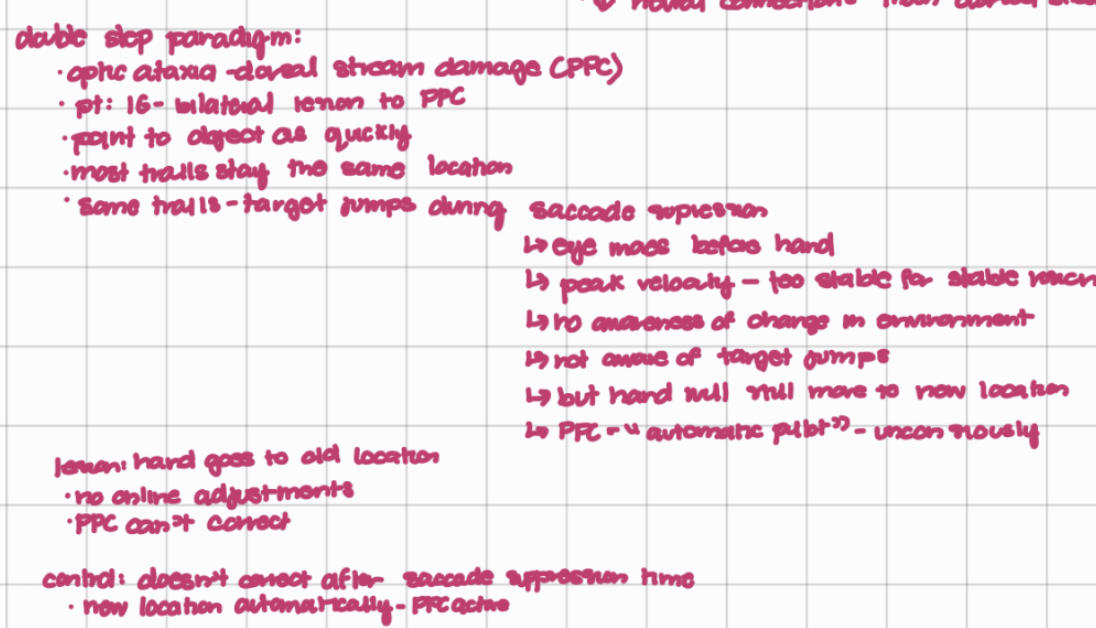 ↳ neural connections from dorsal
double step paradigm:
· optic ataxia - dorsal stream damage (PPC)
· pt: IG - bilateral lesion to PPC
· point to object as quickly
· most trails stay the same location
· some trails - target jumps during saccade supression
↳ eye moes before hand
↳ peak velocity - too stable for stable reach
↳ no awareness of change in environment
↳ not aware of target jumps
↳ but hand will still move to new location
↳ PPC - "automatic pilot" - unconsiously
lesion: hand goes to old location
· no online adjustments
· PPC can't correct
control: doesn't correct after saccade suppression time
· new location automatically - PPC active